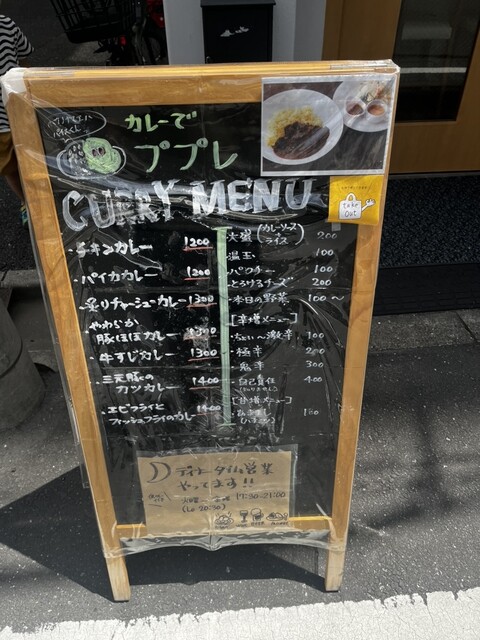 カレーで
ププレ
CURRY MENU
take
out
・チキンカレー 1200
・パイカカレー 1200
・炙りチャーシューカレー 1300
やわらか
・豚ほほカレー 1300
・牛すじカレー 1300
・三元豚の
カツカレー 1400
・エビフライと
フィッシュフライのカレー 1400
・大盛(カレーソース+ライス) 200
・温玉 100
・パクチー 100
・とろけるチーズ 200
・本日の野菜 100〜
[辛増メニュー]
・ちょい〜激辛 100
・極辛 200
・鬼辛 300
・自己責任 400
[甘増メニュー]
180
ディナータイム営業
やってます!!
17:30-21:00
(Lo 20:30)